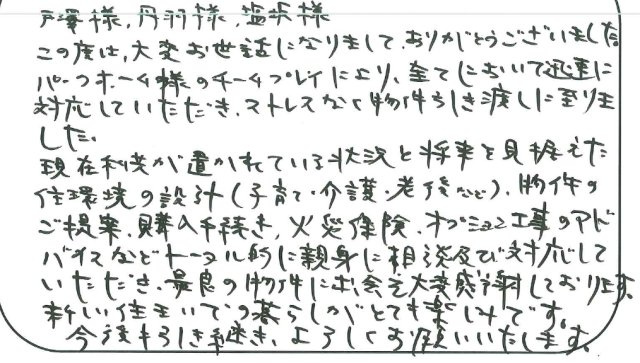 戸澤様,丹羽様,塩沢様
この度は,大変お世話になりまして,ありがとうございました
パークホーム様のチームプレイにより,全てにおいて迅速に
対応していただき,ストレスなく物件引き渡しに至りま
した。
現在私共が置かれている状況と将来を見据えた
住環境の設計(子育て・介護・老後など),物件の
ご提案,購入手続き,火災保険,オプション工事のアド
バイスなどトータル的に親身に相談及び対応して
いただき,最良の物件に出会え大変感謝しております。
新しい住まいでの暮らしがとても楽しみです。
今後も引き続き,よろしくお願いいたします。